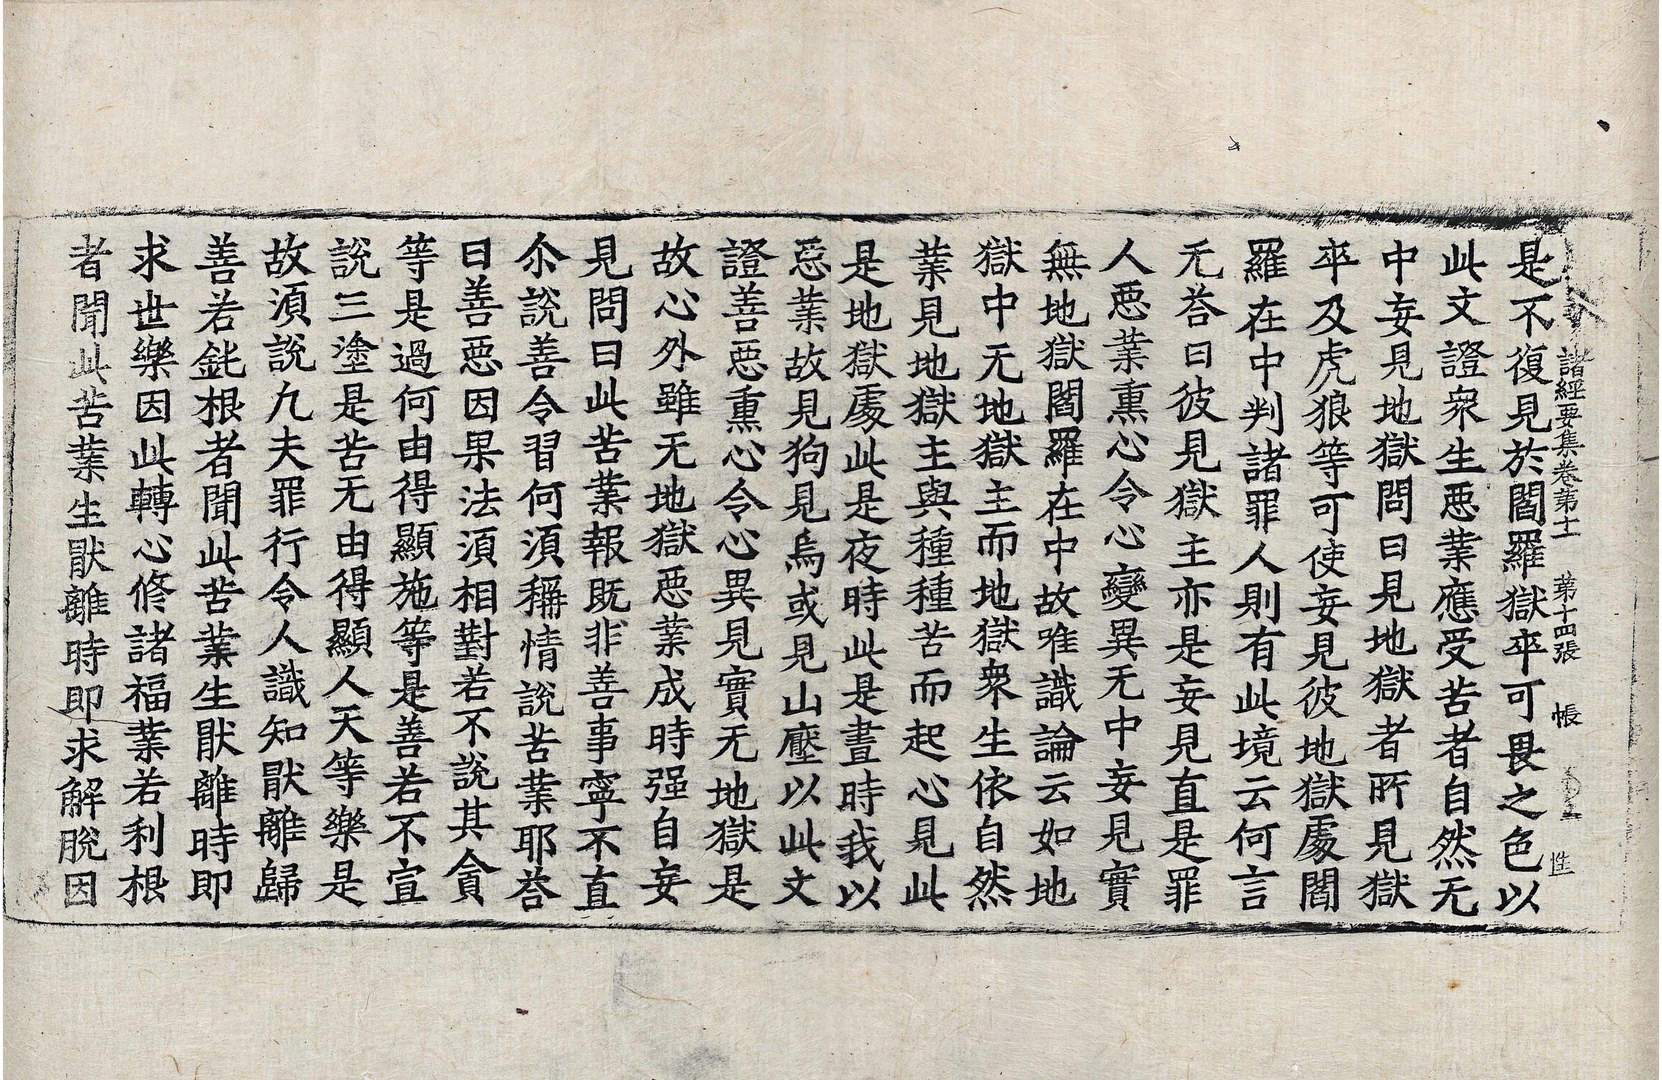 諸經要集卷第十二 第十四張 帳
是不復見於閻羅獄卒可畏之色以
此文證衆生惡業應受苦者自然无
中妄見地獄問曰見地獄者所見獄
卒及虎狼等可使妄見彼地獄處閻
羅在中判諸罪人則有此境云何言
无荅曰彼見獄主亦是妄見直是罪
人惡業熏心令心變異无中妄見實
無地獄閻羅在中故唯識論云如地
獄中无地獄主而地獄衆生依自然
業見地獄主與種種苦而起心見此
是地獄處此是夜時此是晝時我以
惡業故見狗見烏或見山壓以此文
證善惡熏心令心異見實无地獄是
故心外雖无地獄惡業成時强自妄
見問曰此苦業報旣非善事寧不直
尒說善令習何須稱情說苦業耶荅
曰善惡因果法須相對若不說其貪
等是過何由得顯施等是善若不宣
說三塗是苦无由得顯人天等樂是
故須說九夫罪行令人識知猒離歸
善若鈍根者聞此苦業生猒離時即
求世樂因此轉心修諸福業若利根
者聞此苦業生猒離時即求解脫因